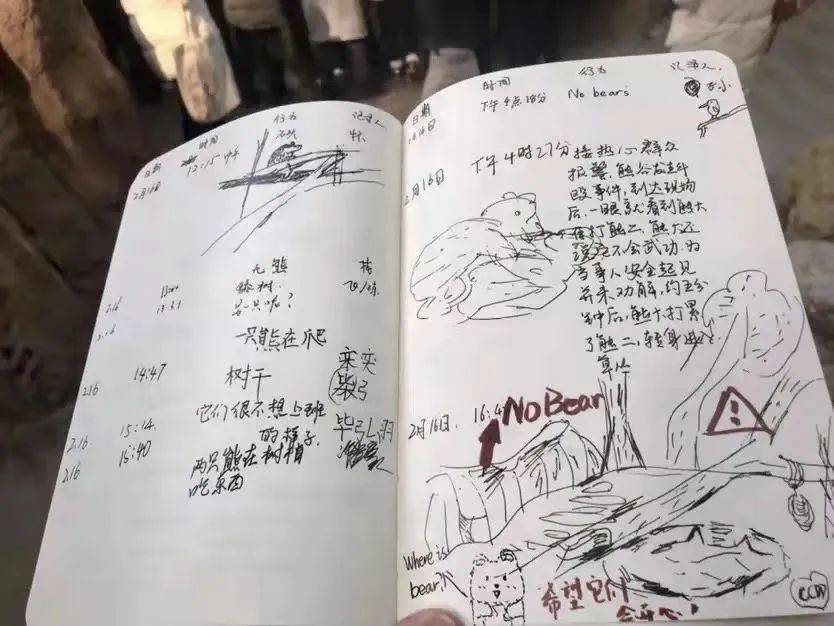 日期 时间 行为 记录人
2月16日 12:15 中午
216 无熊
216 13:51
216 一只熊在爬
216 14:47 树干
216 15:14. 它们很不想上班
的样子.
216 15:40 两只熊在树梢
吃东西
日期 时间 行为 记录人
下午4点18分 No bears
2月16日 下午4时27分接热心群众
报警,熊谷发生斗
殴事件,到达现场
后,一眼就看到熊大
在打熊二,熊大还
说它不会武功,为
当事人安全起见
并未劝解,约五分
钟后,熊大打累
了熊二,转身进入
2月16日. 16:4 No Bear
Where is
bear?
希望它们
会开心!
CCW